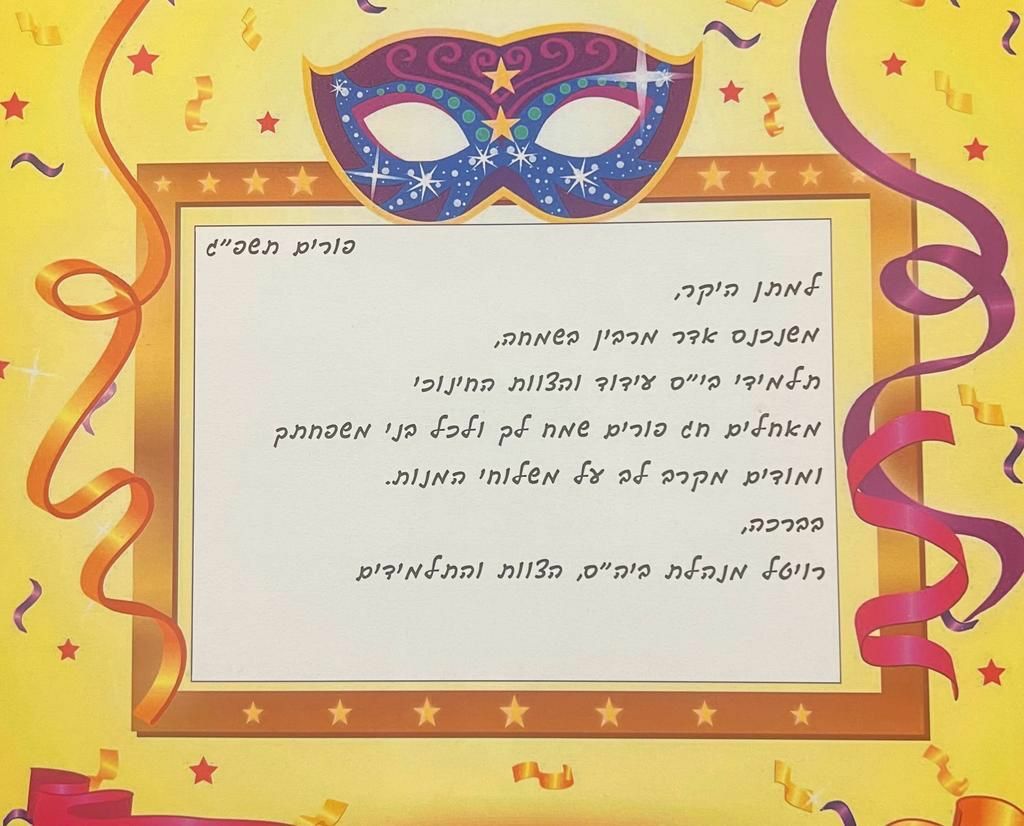 פורים תשפ"ג
למתן היקר,
משנכנס אדר מרבין בשמחה,
תלמידי בי"ס עידוד והצוות החינוכי
מאחלים חג פורים שמח לך ולכל בני משפחתך
ומודים מקרב לב על משלוחי המנות.
בברכה,
רויטל מנהלת ביה"ס, הצוות והתלמידים